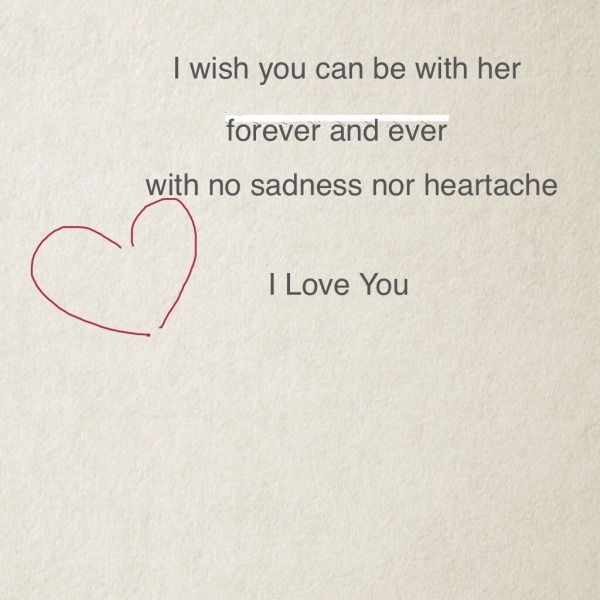 I wish you can be with her
forever and ever
with no sadness nor heartache
I Love You